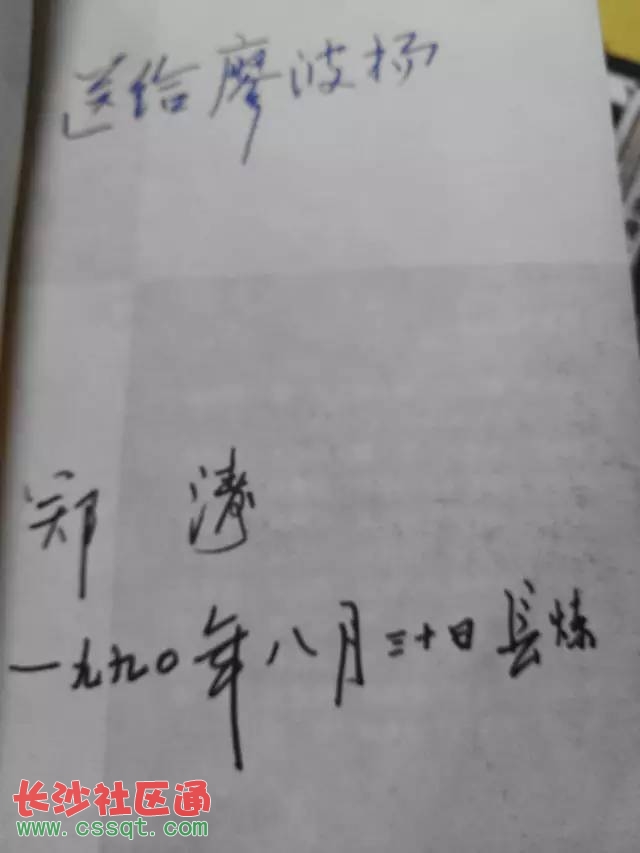 送给廖波杨
郑涛
一九九〇年八月三十日长炼
长沙社区通
www.cssqt.com